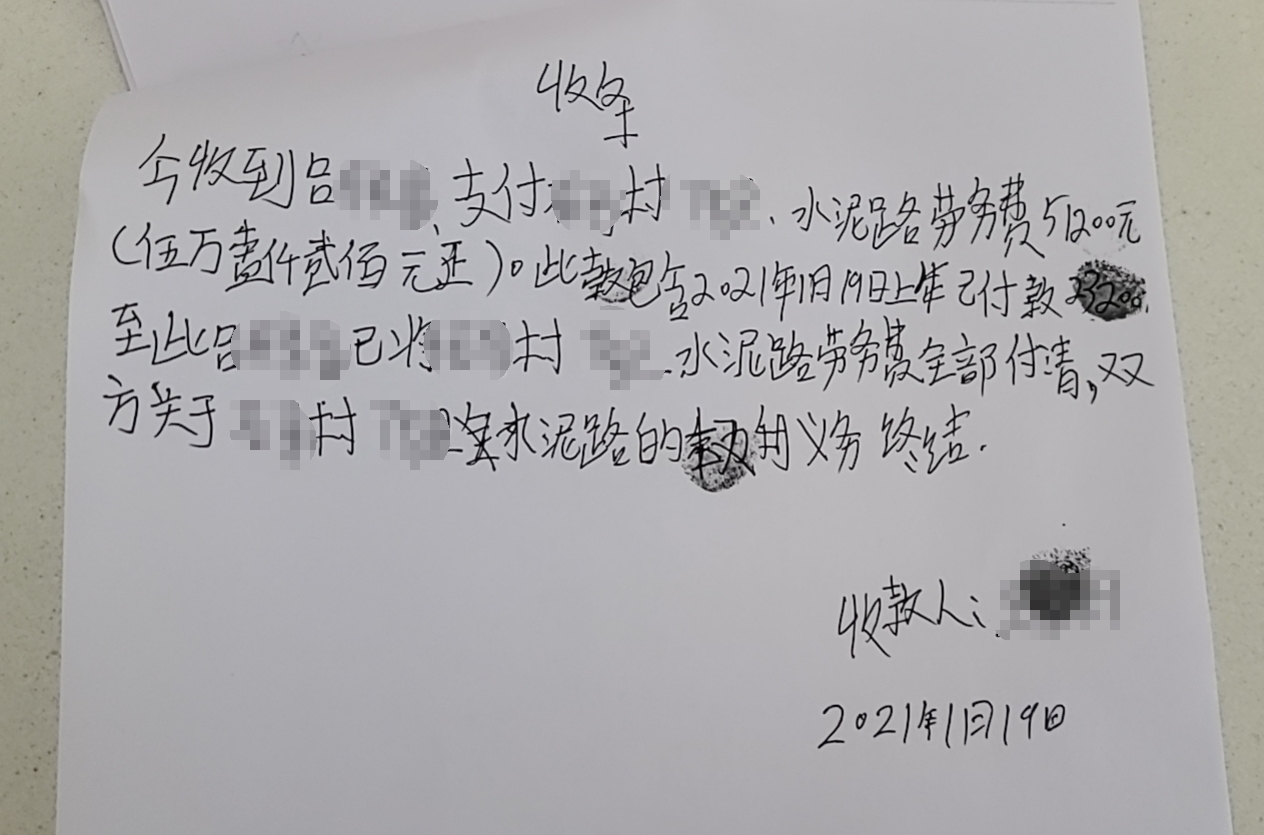 收条
今收到吕 支付 村 水泥路劳务费51200元
(伍万壹仟贰佰元正)。此款包含2021年1月19日上午已付款23200
至此吕 已将 村 水泥路劳务费全部付清,双
方关于 村 水泥路的权利义务终结.
收款人:
2021年1月19日